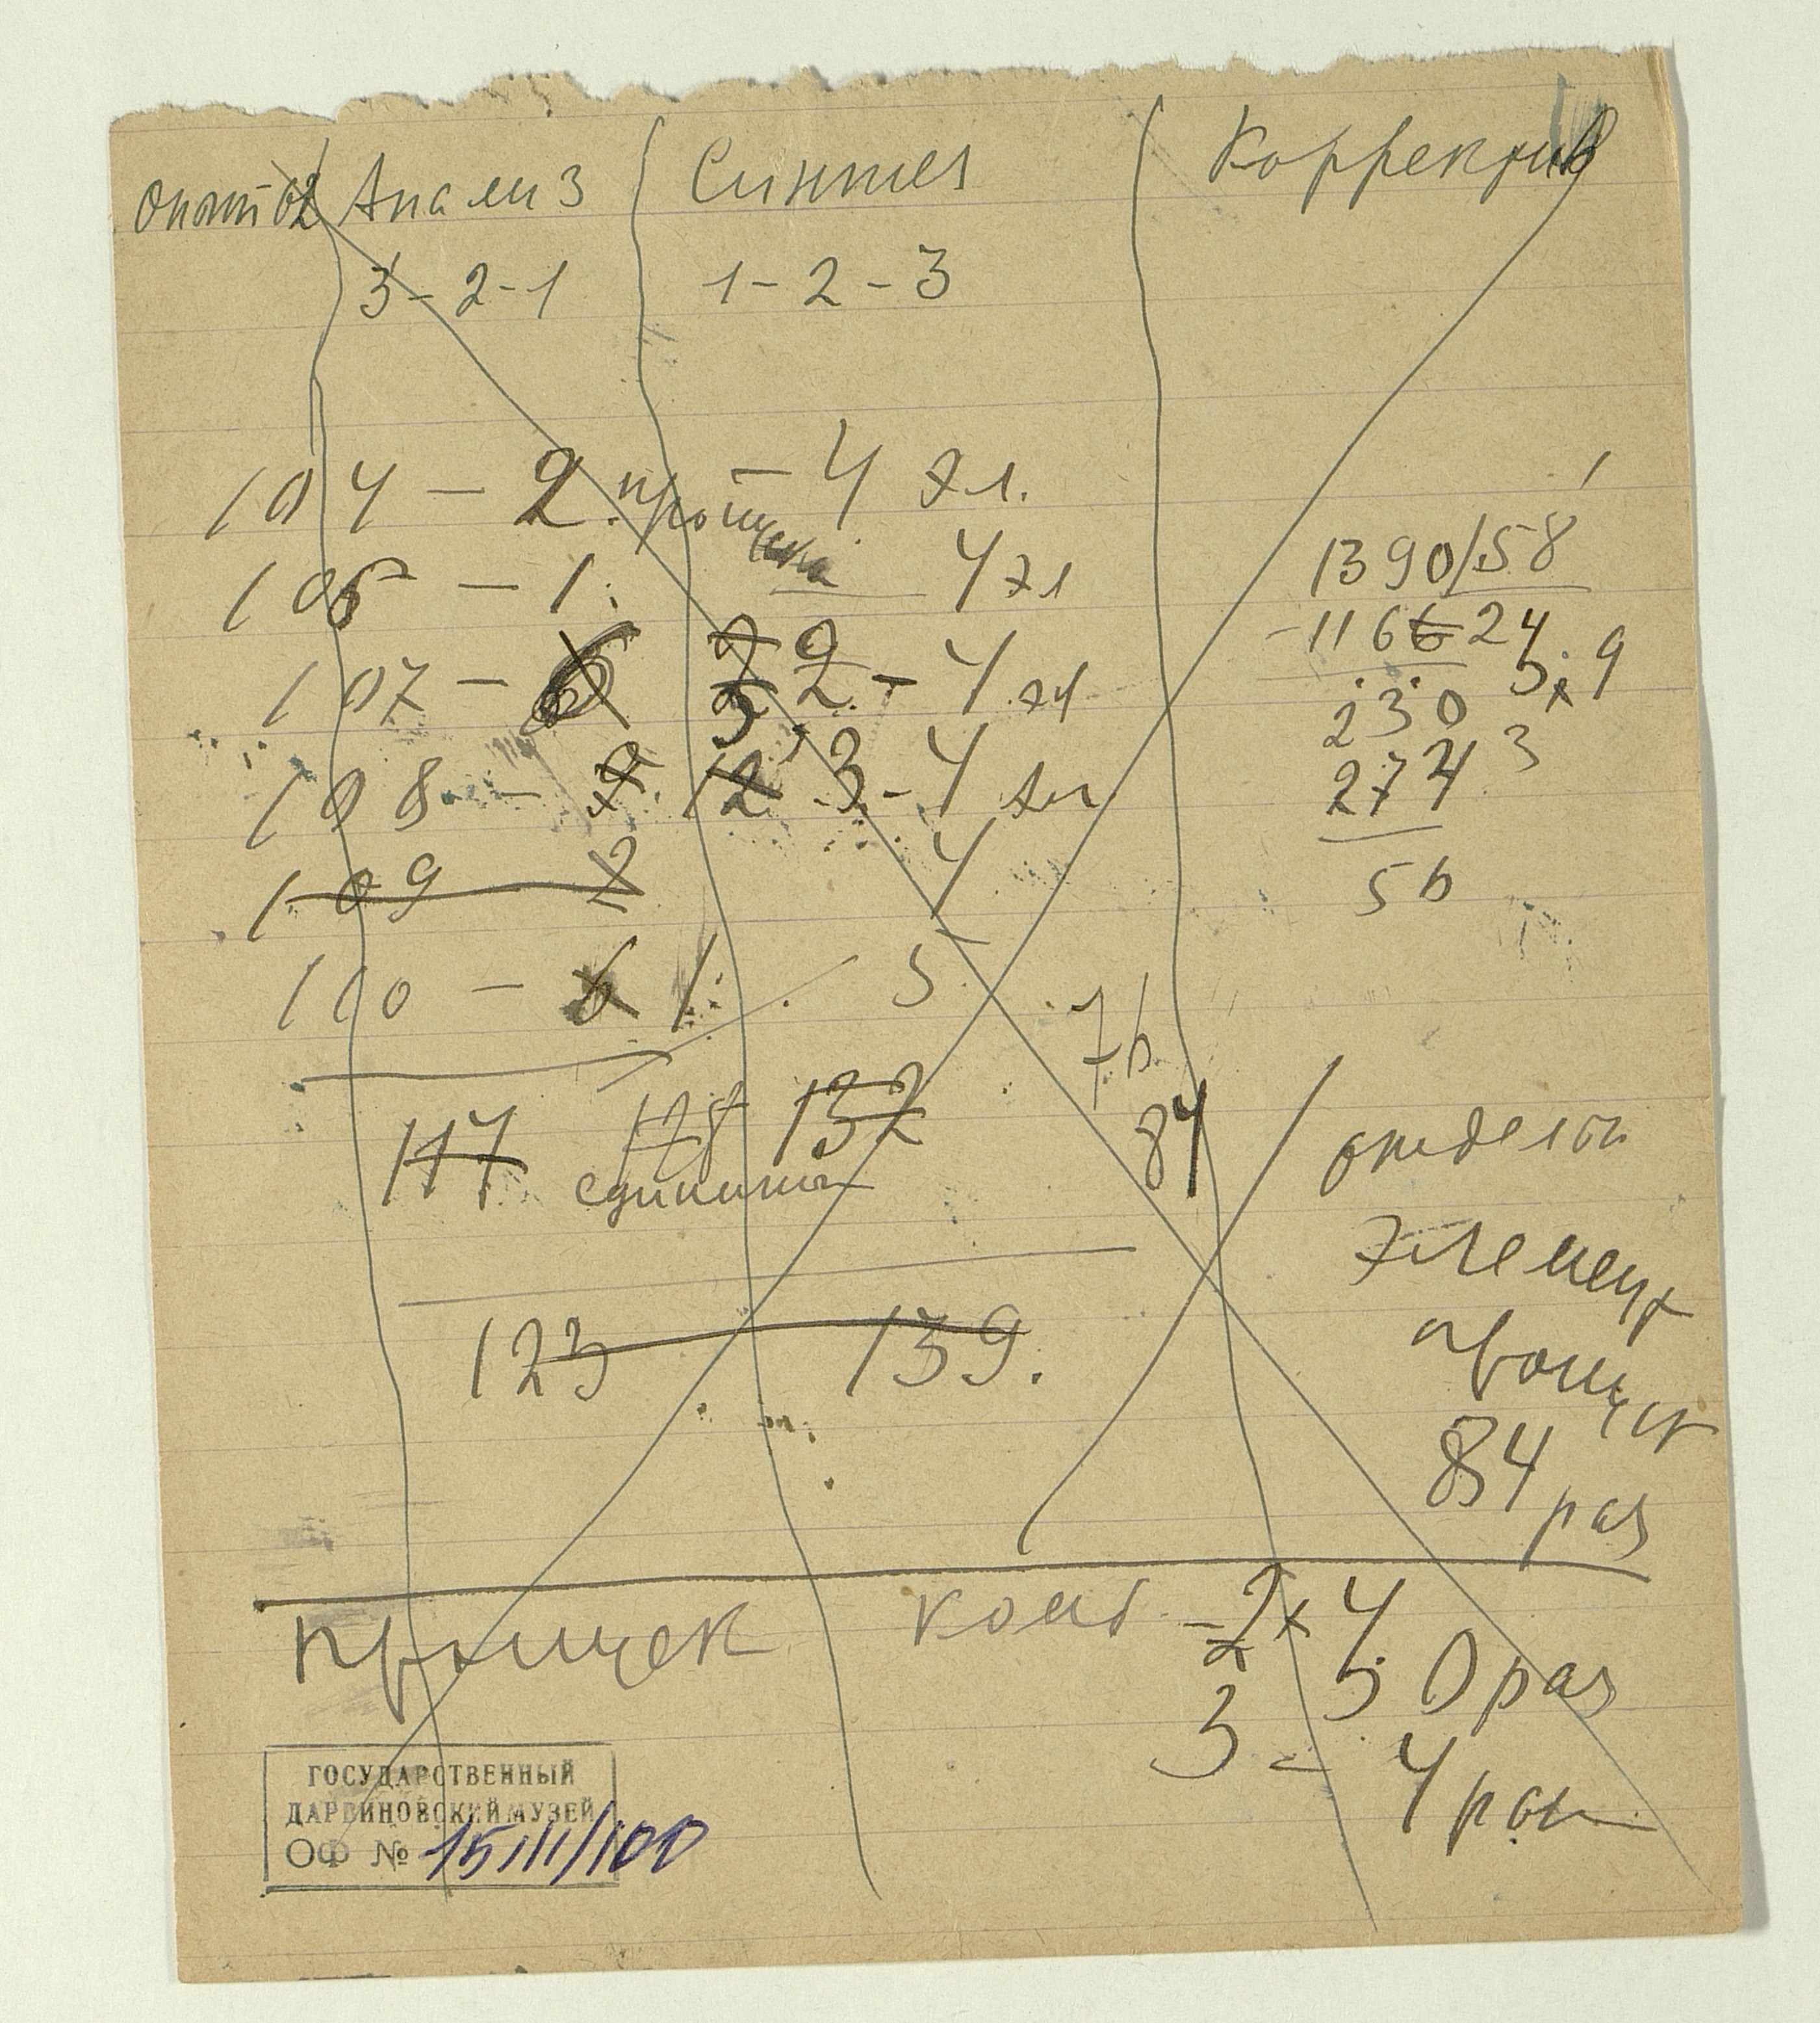 опыты Анализ Синтез Корректив
3-2-1 1-2-3
104 - 2. пропуска - 4 эл.
106 - 1. 4 эл
107 - 6 2 2 - 4 эл
3
108 - 2. 12 3 - 4 эл
109 2 4
110 - 6 1. 5
1390/58
-1166 24
230
274 3
56
76
84
117 128 132
единицы
123 139.
отдельн
элемент
пропуск
84 раз
пропуск комб - 2 x 4
50 раз
3 - 4 раз
ГОСУДАРСТВЕННЫЙ
ДАРВИНОВСКИЙ МУЗЕЙ
ОФ №